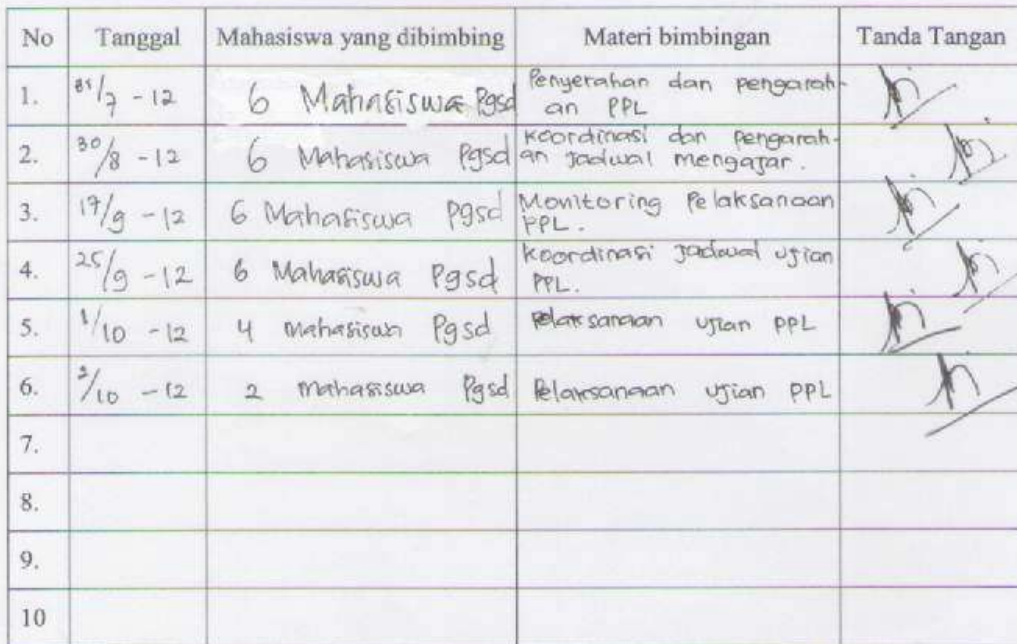 No Tanggal Mahasiswa yang dibimbing Materi bimbingan Tanda Tangan
1. 31/7 - 12 6 Mahasiswa Pgsd Penyerahan dan pengarah-
an PPL
2. 30/8 - 12 6 Mahasiswa Pgsd koordinasi dan pengarah-
an Jadwal mengajar.
3. 17/9 - 12 6 Mahasiswa Pgsd Monitoring Pelaksanaan
PPL.
4. 25/9 - 12 6 Mahasiswa Pgsd koordinasi jadwal ujian
PPL.
5. 1/10 - 12 4 mahasiswa Pgsd Pelaksanaan ujian PPL
6. 2/10 - 12 2 mahasiswa Pgsd Pelaksanaan ujian PPL
7.
8.
9.
10